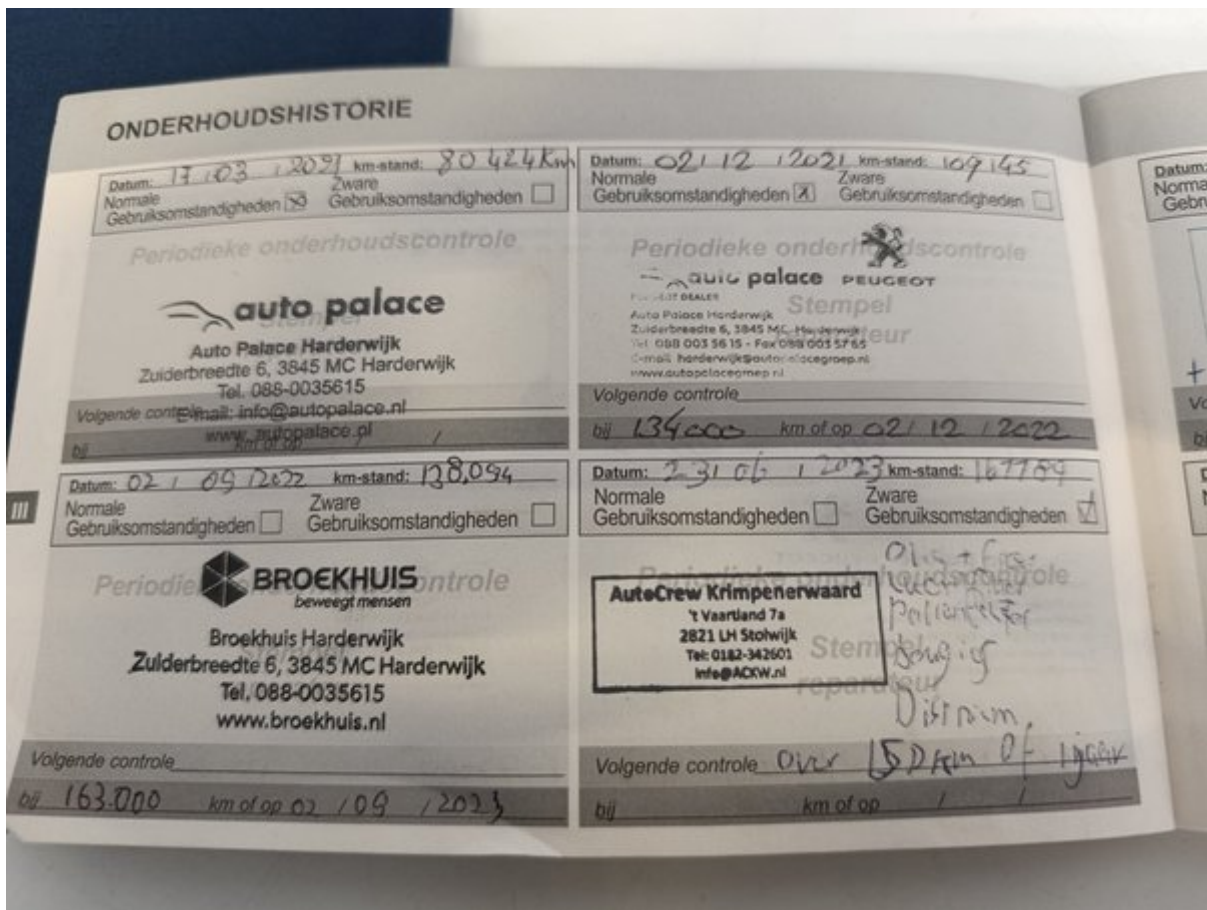 ONDERHOUDSHISTORIE
Datum: 17 / 03 / 2021 km-stand: 80424Km
Normale Gebruiksomstandigheden ☒ Zware Gebruiksomstandigheden ☐
Periodieke onderhoudscontrole
auto palace
Stempel
Auto Palace Harderwijk
Zuiderbreedte 6, 3845 MC Harderwijk
Tel. 088-0035615
Volgende controle
E-mail: info@autopalace.nl
www.autopalace.nl
bij km of op / /
Datum: 02 / 12 / 2021 km-stand: 109145
Normale Gebruiksomstandigheden ☒ Zware Gebruiksomstandigheden ☐
Periodieke onderhoudscontrole
auto palace PEUGEOT
DEALER
Stempel
Auto Palace Harderwijk
Zuiderbreedte 6, 3845 MC Harderwijk
Tel 088 003 56 15 - Fax 088 003 57 65
E-mail harderwijk@autopalacegroep.nl
www.autopalacegroep.nl
Volgende controle
bij 134000 km of op 02 / 12 / 2022
III
Datum: 02 / 09 / 2022 km-stand: 138,094
Normale Gebruiksomstandigheden ☐ Zware Gebruiksomstandigheden ☐
BROEKHUIS
beweegt mensen
Broekhuis Harderwijk
Zuiderbreedte 6, 3845 MC Harderwijk
Tel. 088-0035615
www.broekhuis.nl
Volgende controle
bij 163.000 km of op 02 / 09 / 2023
Datum: 23 / 06 / 2023 km-stand: 167789
Normale Gebruiksomstandigheden ☐ Zware Gebruiksomstandigheden ☑
Periodieke onderhoudscontrole
AutoCrew Krimpenerwaard
't Vaartland 7a
2821 LH Stolwijk
Tel: 0182-342601
Info@ACKW.nl
Stempel
reparateur
Olie +
Volgende controle Over 15D km Of 1 jaar
bij km of op / /
Datum: